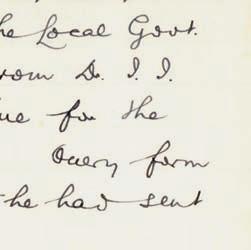 he Local Govt.
rom Dr. I. I.
ue for the
Query form
the had sent